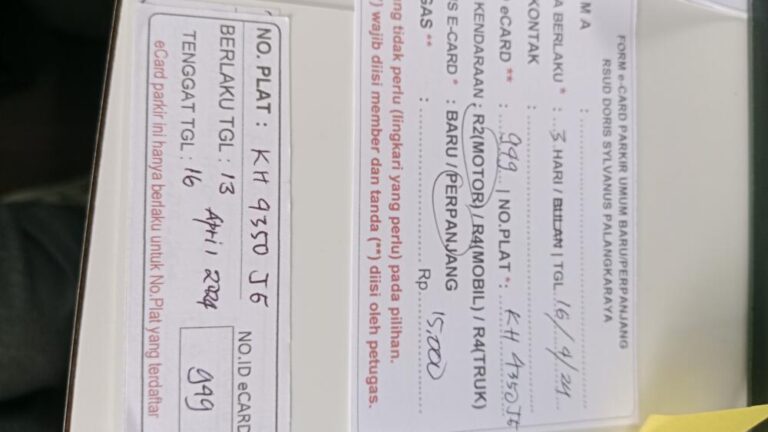 FORM e-CARD PARKIR UMUM BARU/PERPANJANG
RSUD DORIS SYLVANUS PALANGKARAYA
M A :
A BERLAKU * : 3 HARI / BULAN | TGL 16/4/24
KONTAK :
eCARD ** : 949 | NO.PLAT *: KH 4350 JE
KENDARAAN : R2(MOTOR) / R4(MOBIL) / R4(TRUK)
IS E-CARD * : BARU / PERPANJANG
GAS ** : Rp 15,000
ng tidak perlu (lingkari yang perlu) pada pilihan.
*) wajib diisi member dan tanda (**) diisi oleh petugas.
NO. PLAT : KH 4350 JE
BERLAKU TGL : 13 April 2024
TENGGAT TGL : 16
NO.ID eCARD
949
eCard parkir ini hanya berlaku untuk No.Plat yang terdaftar